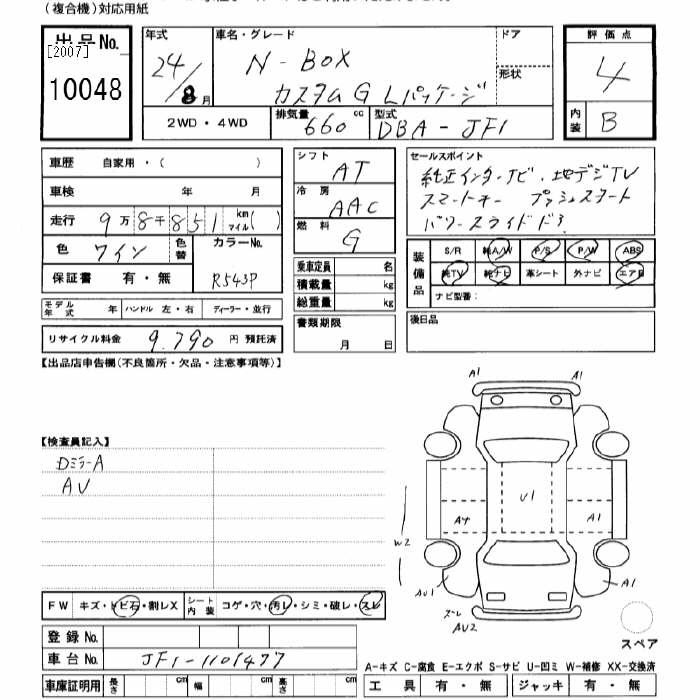 (複合機)対応用紙
出品No.
[2007]
10048
年式
24/8月
車名・グレード
N-BOX
カスタムG Lパッケージ
ドア
形状
評価点
4
内装 B
2WD・4WD
排気量 660 cc
型式 DBA-JF1
車歴 自家用・( )
車検 年 月
走行 9万8千851 km マイル( )
色 ワイン
色替
カラーNo.
R543P
保証書 有・無
モデル年式 年 ハンドル 左・右 ディーラー・並行
リサイクル料金 9.790 円 預託済
シフト AT
冷房 AAC
燃料 G
乗車定員 名
積載量 kg
総重量 kg
書類期限
月 日
セールスポイント
純正インターナビ・地デジTV
スマートキー プッシュスタート
パワースライドド
装備品
S/R 純A/W P/S P/W ABS
純TV 純ナビ 革シート 外ナビ エアB
ナビ型番:
後日品
【出品店申告欄(不良箇所・欠品・注意事項等)】
【検査員記入】
DミラーA
AV
A1 A1
U1
A4 A1
W2
AU1 A1
スレ
AU2
スペア
FW キズ・トビ石・割レX シート内装 コゲ・穴・汚レ・シミ・破レ・スレ
登録No.
車台No. JF1-1101477
車庫証明用 長さ cm 幅 cm 高さ cm
A-キズ C-腐食 E-エクボ S-サビ U-凹ミ W-補修 XX-交換済
工具 有・無 ジャッキ 有・無